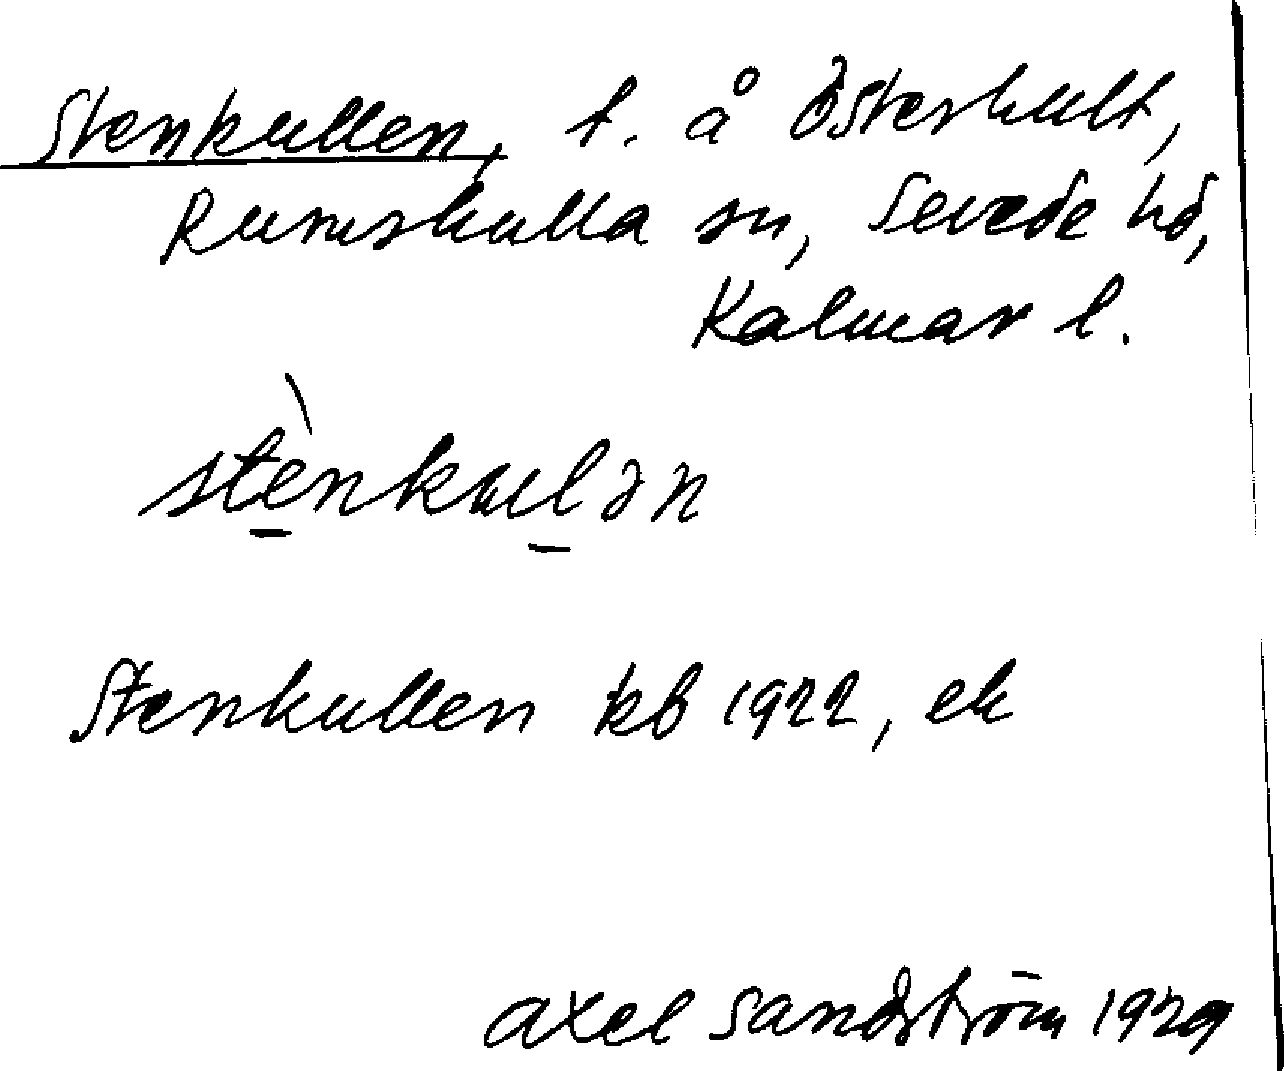 Stenkullen, t. å Österhult,
Rumskulla sn, Sevede hd,
Kalmar l.
stènkulən
Stenkullen kb 1922, ek
Axel Sandström 1929